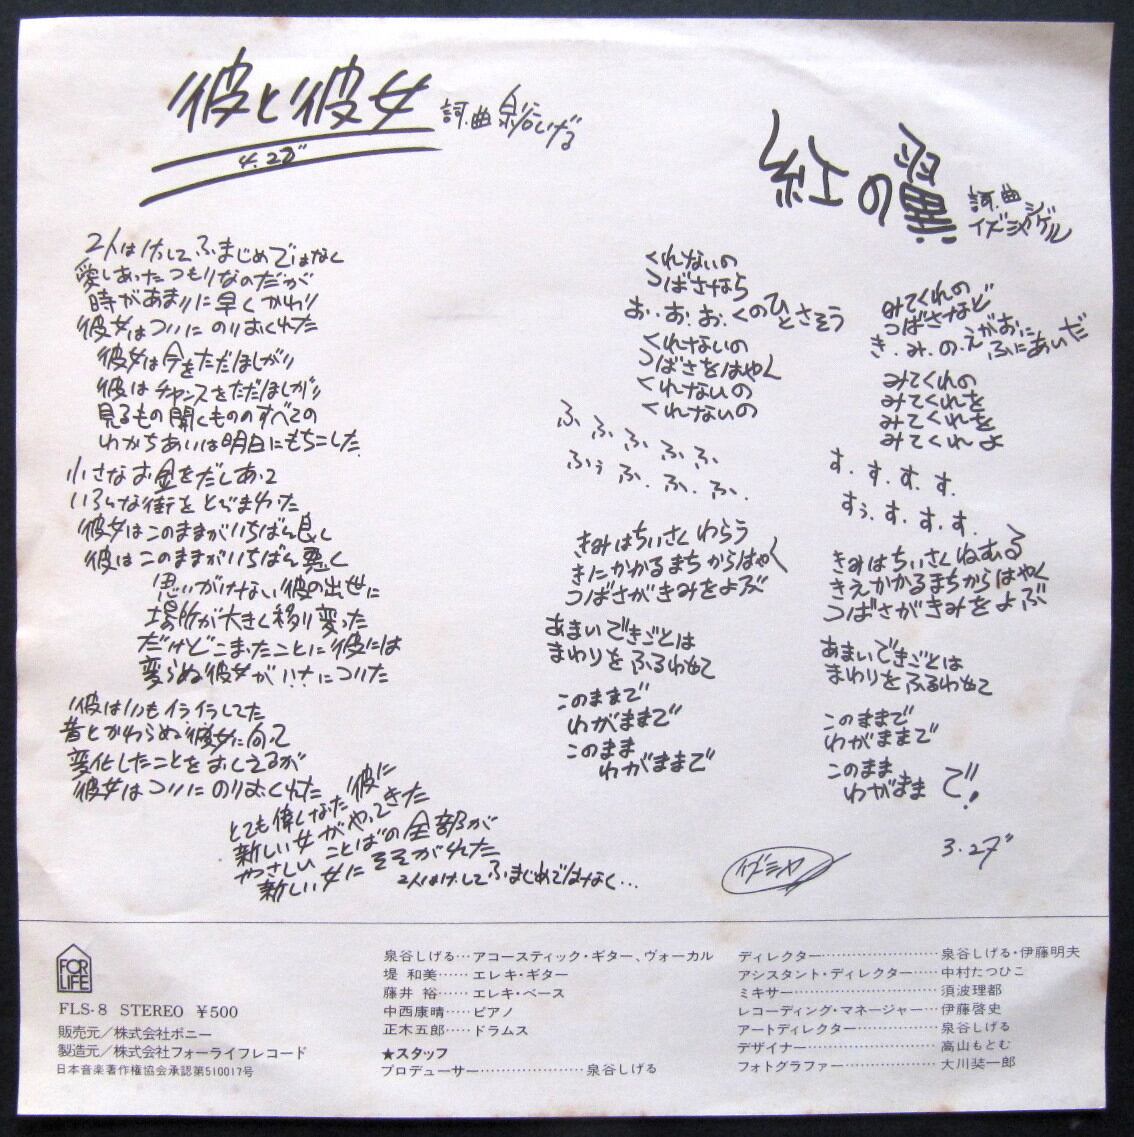 彼と彼女
4.28"
詞.曲 泉谷しげる
2人はけしてふまじめではなく
愛しあったつもりなのだが
時があまりに早くかわり
彼女はついにのりおくれた
彼女は今をただほしがり
彼はチャンスをただほしがり
見るもの聞くもののすべての
わかちあいは明日にもちこした
小さなお金をだしあって
いろんな街をとびまわった
彼女はこのままがいちばん良し
彼はこのままがいちばん悪く
思いがけない彼の出世に
場所が大きく移り変った
だけどこまったことに彼には
変らぬ彼女がいた
彼はいつもイライラしてた
昔とかわらぬ彼女に向って
変化したことをおしえるが
彼女はついにのりおくれた
とても偉しなった彼に
新しい女がやってきた
やさしいことばの全部が
新しい女にそそがれた
2人はけしてふまじめではなく…
紅の翼
詞.曲
イズミヤシゲル
くれないの
つばさなら
お..お.お.くのひとさそう
くれないの
つばさをはやく
くれないの
くれないの
ふ ふ ふ ふ ふ
ふぅ ふ. ふ. ふ.
きみはちいさくわらう
きにかかるまちからはやく
つばさがきみをよぶ
あまいできごとは
まわりをふるわせて
このままで
わがままで
このまま
わがままで
みてくれの
つばさなど
き.み.の.えがおにふにあいだ
みてくれの
みてくれを
みてくれを
みてくれよ
す.す.す.す.
すぅ.す.す.す.
きみはちいさくねむる
きえかかるまちからはやく
つばさがきみをよぶ
あまいできごとは
まわりをふるわせて
このままで
わがままで
このまま
わがままで!
3.27"
イズミヤ
FOR
LIFE
FLS-8 STEREO ¥500
販売元/株式会社ポニー
製造元/株式会社フォーライフレコード
日本音楽著作権協会承認第510017号
泉谷しげる…アコースティック・ギター、ヴォーカル
堤 和美……エレキ・ギター
藤井 裕……エレキ・ベース
中西康晴……ピアノ
正木五郎……ドラムス
★スタッフ
プロデューサー…………………泉谷しげる
ディレクター…………………泉谷しげる・伊藤明夫
アシスタント・ディレクター………中村たつひこ
ミキサー…………………須波理都
レコーディング・マネージャー…伊藤啓史
アートディレクター…………泉谷しげる
デザイナー…………………高山もとむ
フォトグラファー……………大川装一郎